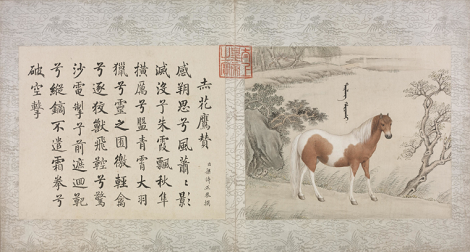 赤花鷹贊
感朔思兮風蕭蕭影
滅沒兮朱霞飄秋隼
橫厲兮青霄大羽
獵兮靈之囿徼輕禽
兮逐狡獸飛鞚兮驚
沙電掣兮前遮迴範
兮縱鏑不遣霜拳兮
破空擊